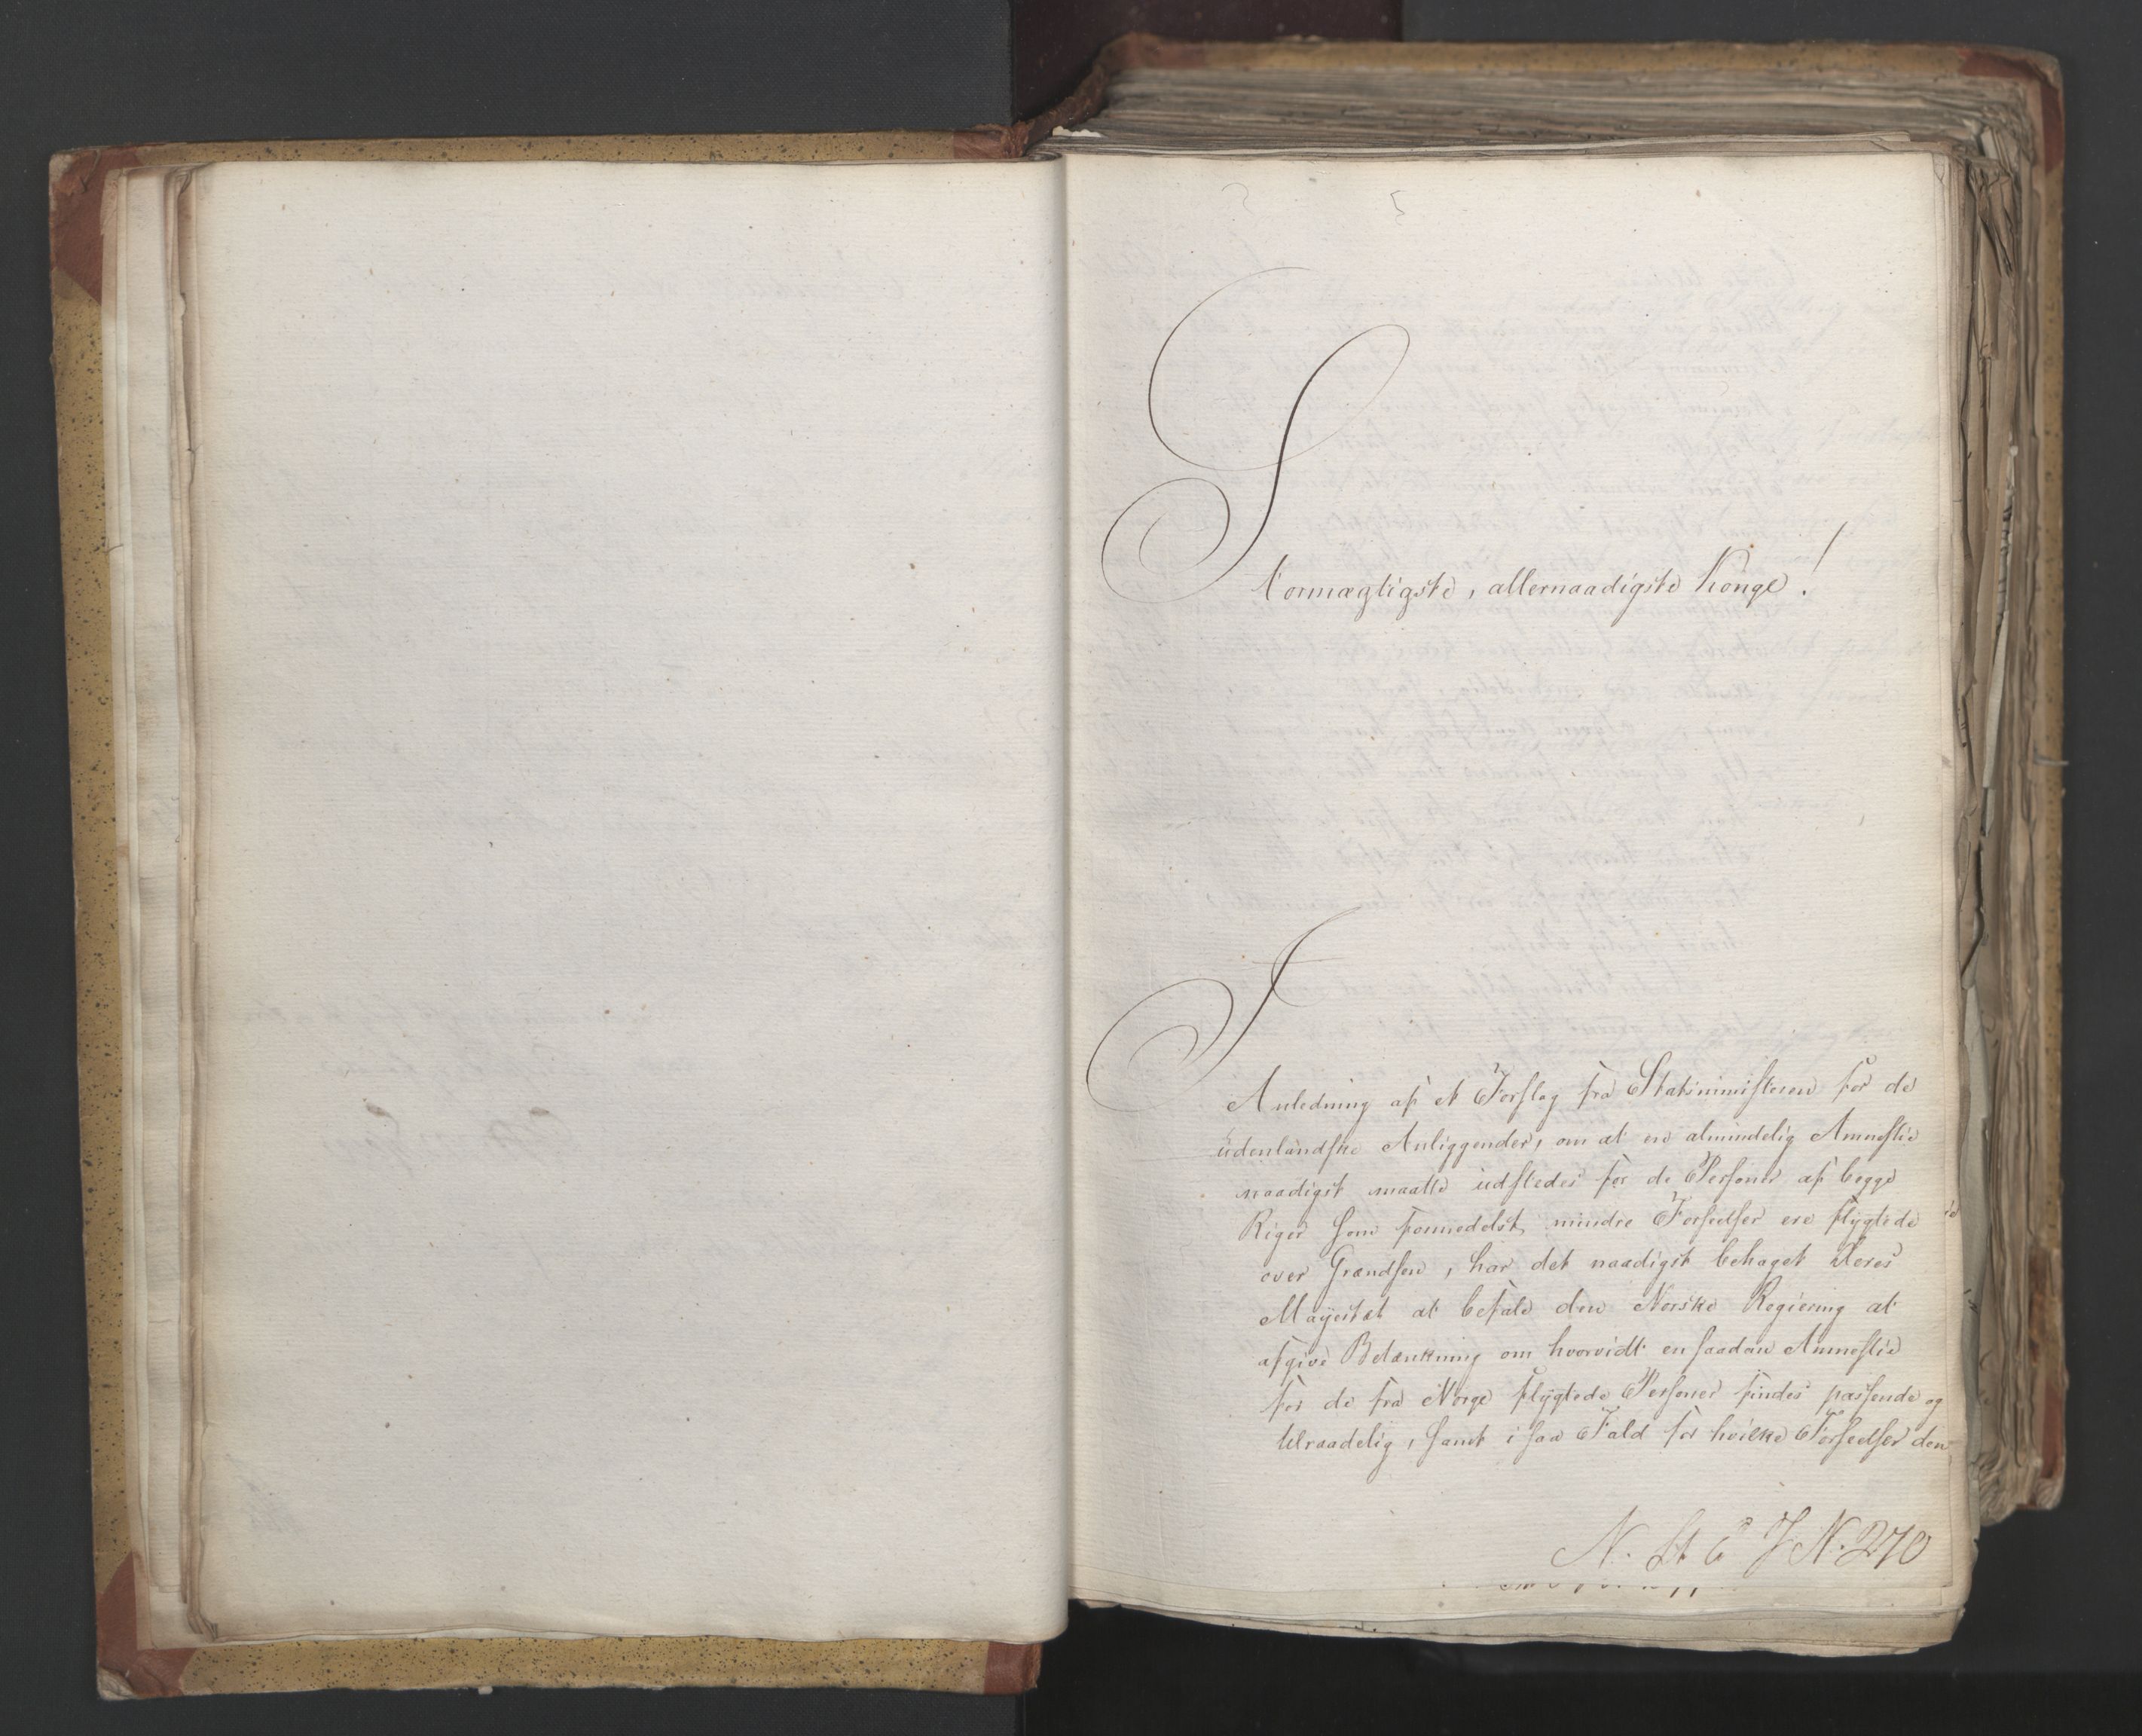 Stormægtigste, allernaadigste Konge!
I
Anledning af et Forslag fra Statsministeren for de
udenlandske Anliggender, om at en almindelig Amnestie
naadigst maatte udstedes for de Personer af begge
Riger som formedelst mindre Forseelser ere flygtede
over Grændsen, har det naadigst behaget Deres
Mayestæt at befale den Norske Regiering at
afgive Betænkning om hvorvidt en saadan Amnestie
for de fra Norge flygtede Personer findes passende og
tilraadelig, samt i saa Fald for hvilke Forseelser den
N. St E J N. 270